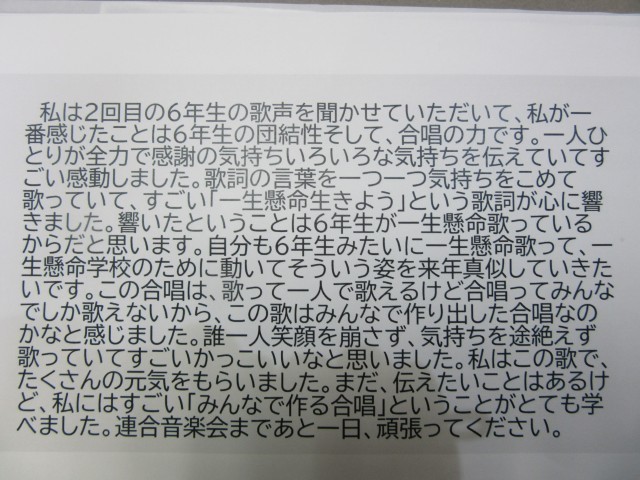 私は2回目の6年生の歌声を聞かせていただいて、私が一
番感じたことは6年生の団結性そして、合唱の力です。一人ひ
とりが全力で感謝の気持ちいろいろな気持ちを伝えていてす
ごい感動しました。歌詞の言葉を一つ一つ気持ちをこめて
歌っていて、すごい「一生懸命生きよう」という歌詞が心に響
きました。響いたということは6年生が一生懸命歌っている
からだと思います。自分も6年生みたいに一生懸命歌って、一
生懸命学校のために動いてそういう姿を来年真似していきた
いです。この合唱は、歌って一人で歌えるけど合唱ってみんな
でしか歌えないから、この歌はみんなで作り出した合唱なの
かなと感じました。誰一人笑顔を崩さず、気持ちを途絶えず
歌っていてすごいかっこいいなと思いました。私はこの歌で、
たくさんの元気をもらいました。まだ、伝えたいことはあるけ
ど、私にはすごい「みんなで作る合唱」ということがとても学
べました。連合音楽会まであと一日、頑張ってください。